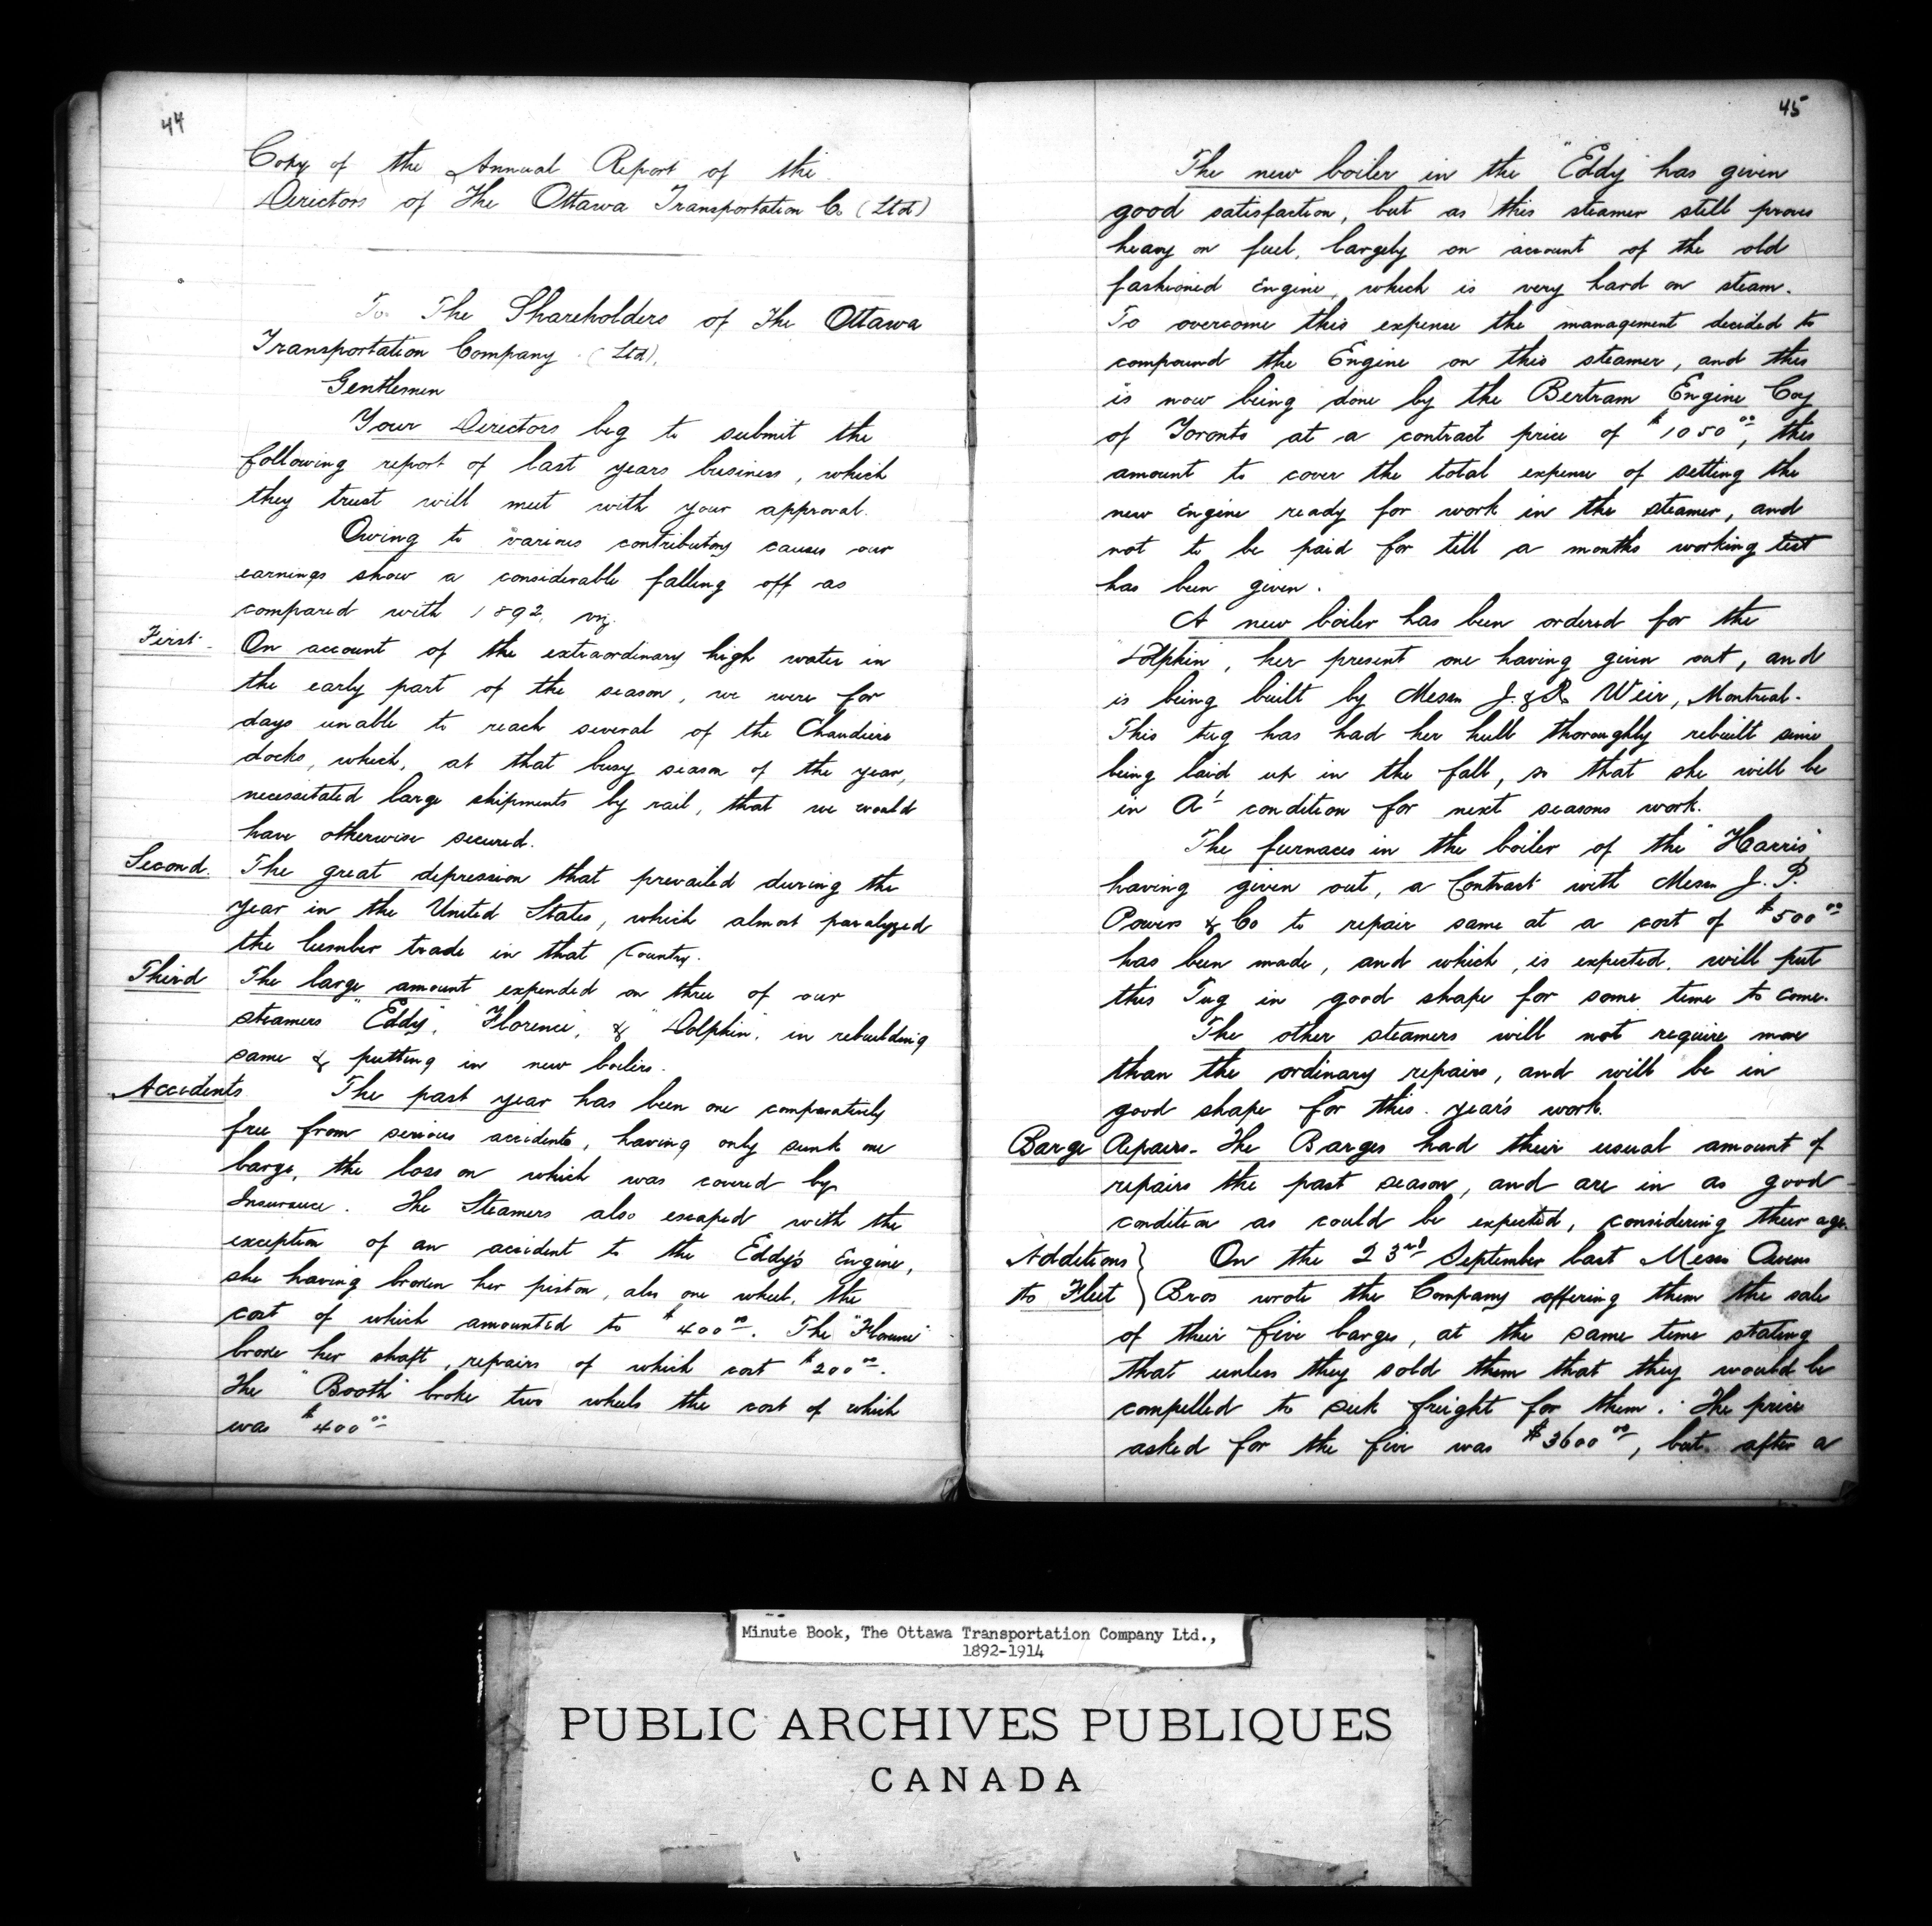 44
Copy of the Annual Report of the
Directors of The Ottawa Transportation Co (Ltd)
To The Shareholders of The Ottawa
Transportation Company (Ltd).
Gentlemen
Your Directors beg to submit the
following report of last years business, which
they trust will meet with your approval.
Owing to various contributory causes our
earnings show a considerable falling off as
compared with 1892, viz.
First. On account of the extraordinary high water in
the early part of the season, we were for
days unable to reach several of the Chaudiere
docks, which, at that busy season of the year,
necessitated large shipments by rail, that we would
have otherwise secured.
Second. The great depression that prevailed during the
year in the United States, which almost paralyzed
the lumber trade in that Country.
Third The large amount expended on three of our
steamers "Eddy", "Florence", & "Dolphin", in rebuilding
same & putting in new boilers.
Accidents The past year has been one comparatively
free from serious accidents, having only sunk one
barge, the loss on which was covered by
Insurance. The Steamers also escaped with the
exception of an accident to the Eddy's Engine,
she having broken her piston, also one wheel, the
cost of which amounted to $400.00. The "Florence"
broke her shaft, repairs of which cost $200.00.
The "Booth" broke two wheels the cost of which
was $400.00
45
The new boiler in the "Eddy" has given
good satisfaction, but as this steamer still proves
heavy on fuel, largely on account of the old
fashioned Engine, which is very hard on steam.
To overcome this expense the management decided to
compound the Engine on this steamer, and this
is now being done by the Bertram Engine Coy
of Toronto at a contract price of $1050.00, this
amount to cover the total expense of setting the
new Engine ready for work in the steamer, and
not to be paid for till a months working test
has been given.
A new boiler has been ordered for the
"Dolphin", her present one having given out, and
is being built by Messrs J. & R. Weir, Montreal.
This tug has had her hull thoroughly rebuilt since
being laid up in the fall, so that she will be
in A1 condition for next seasons work.
The furnaces in the boiler of the "Harris"
having given out, a Contract with Messrs J. P.
Powers & Co to repair same at a cost of $500.00
has been made, and which, is expected, will put
this Tug in good shape for some time to come.
The other steamers will not require more
than the ordinary repairs, and will be in
good shape for this year's work.
Barge Repairs. The Barges had their usual amount of
repairs the past season, and are in as good
condition as could be expected, considering their age.
Additions } On the 23rd September last Messrs Owens
to Fleet } Bros wrote the Company offering them the sale
of their five barges, at the same time stating
that unless they sold them that they would be
compelled to seek freight for them. The price
asked for the five was $3600.00, but after a
Minute Book, The Ottawa Transportation Company Ltd.,
1892-1914
PUBLIC ARCHIVES PUBLIQUES
CANADA